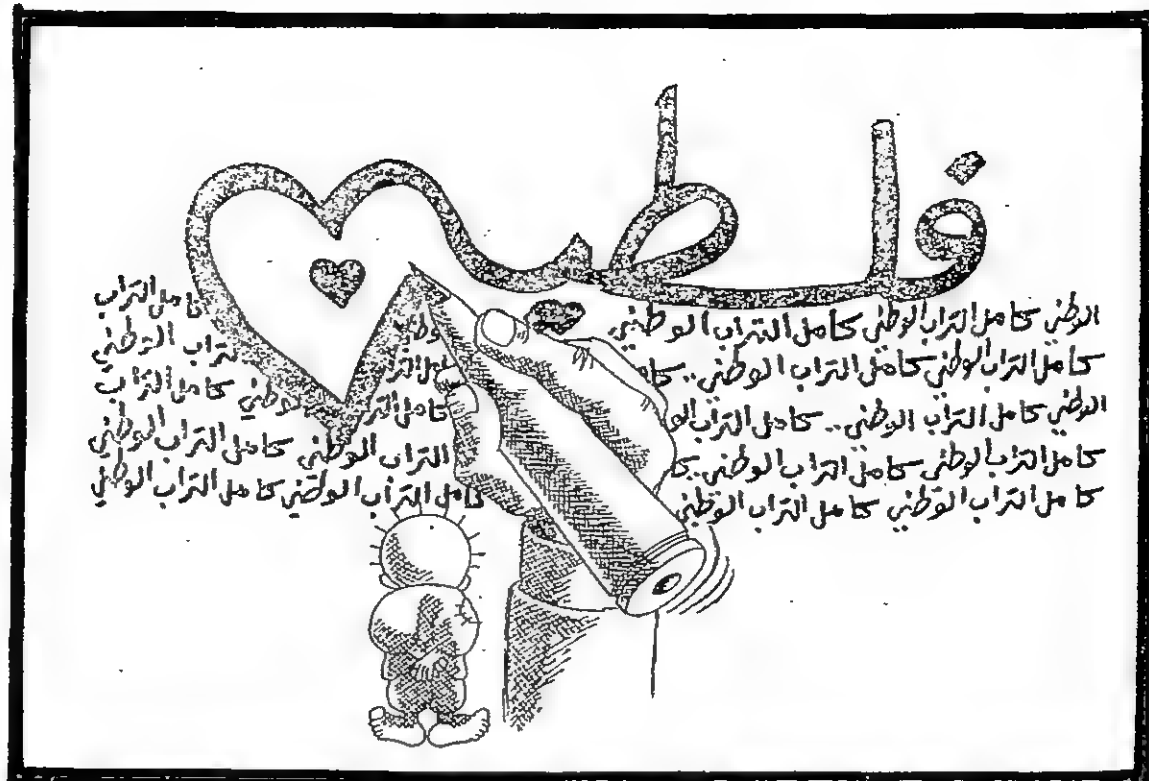 فلسطين
الوطني كامل التراب الوطني كامل التراب الوطني وطني كامل التراب
كامل التراب الوطني كامل التراب الوطني .. كام امل التر تراب الوطني
الوطني كامل التراب الوطني .. كامل التراب الو كامل التر الوطني كامل التراب
كامل التراب الوطني كامل التراب الوطني .. كا التراب الوطني كامل التراب الوطني
كامل التراب الوطني كامل التراب الوطني كامل التراب الوطني كامل التراب الوطني